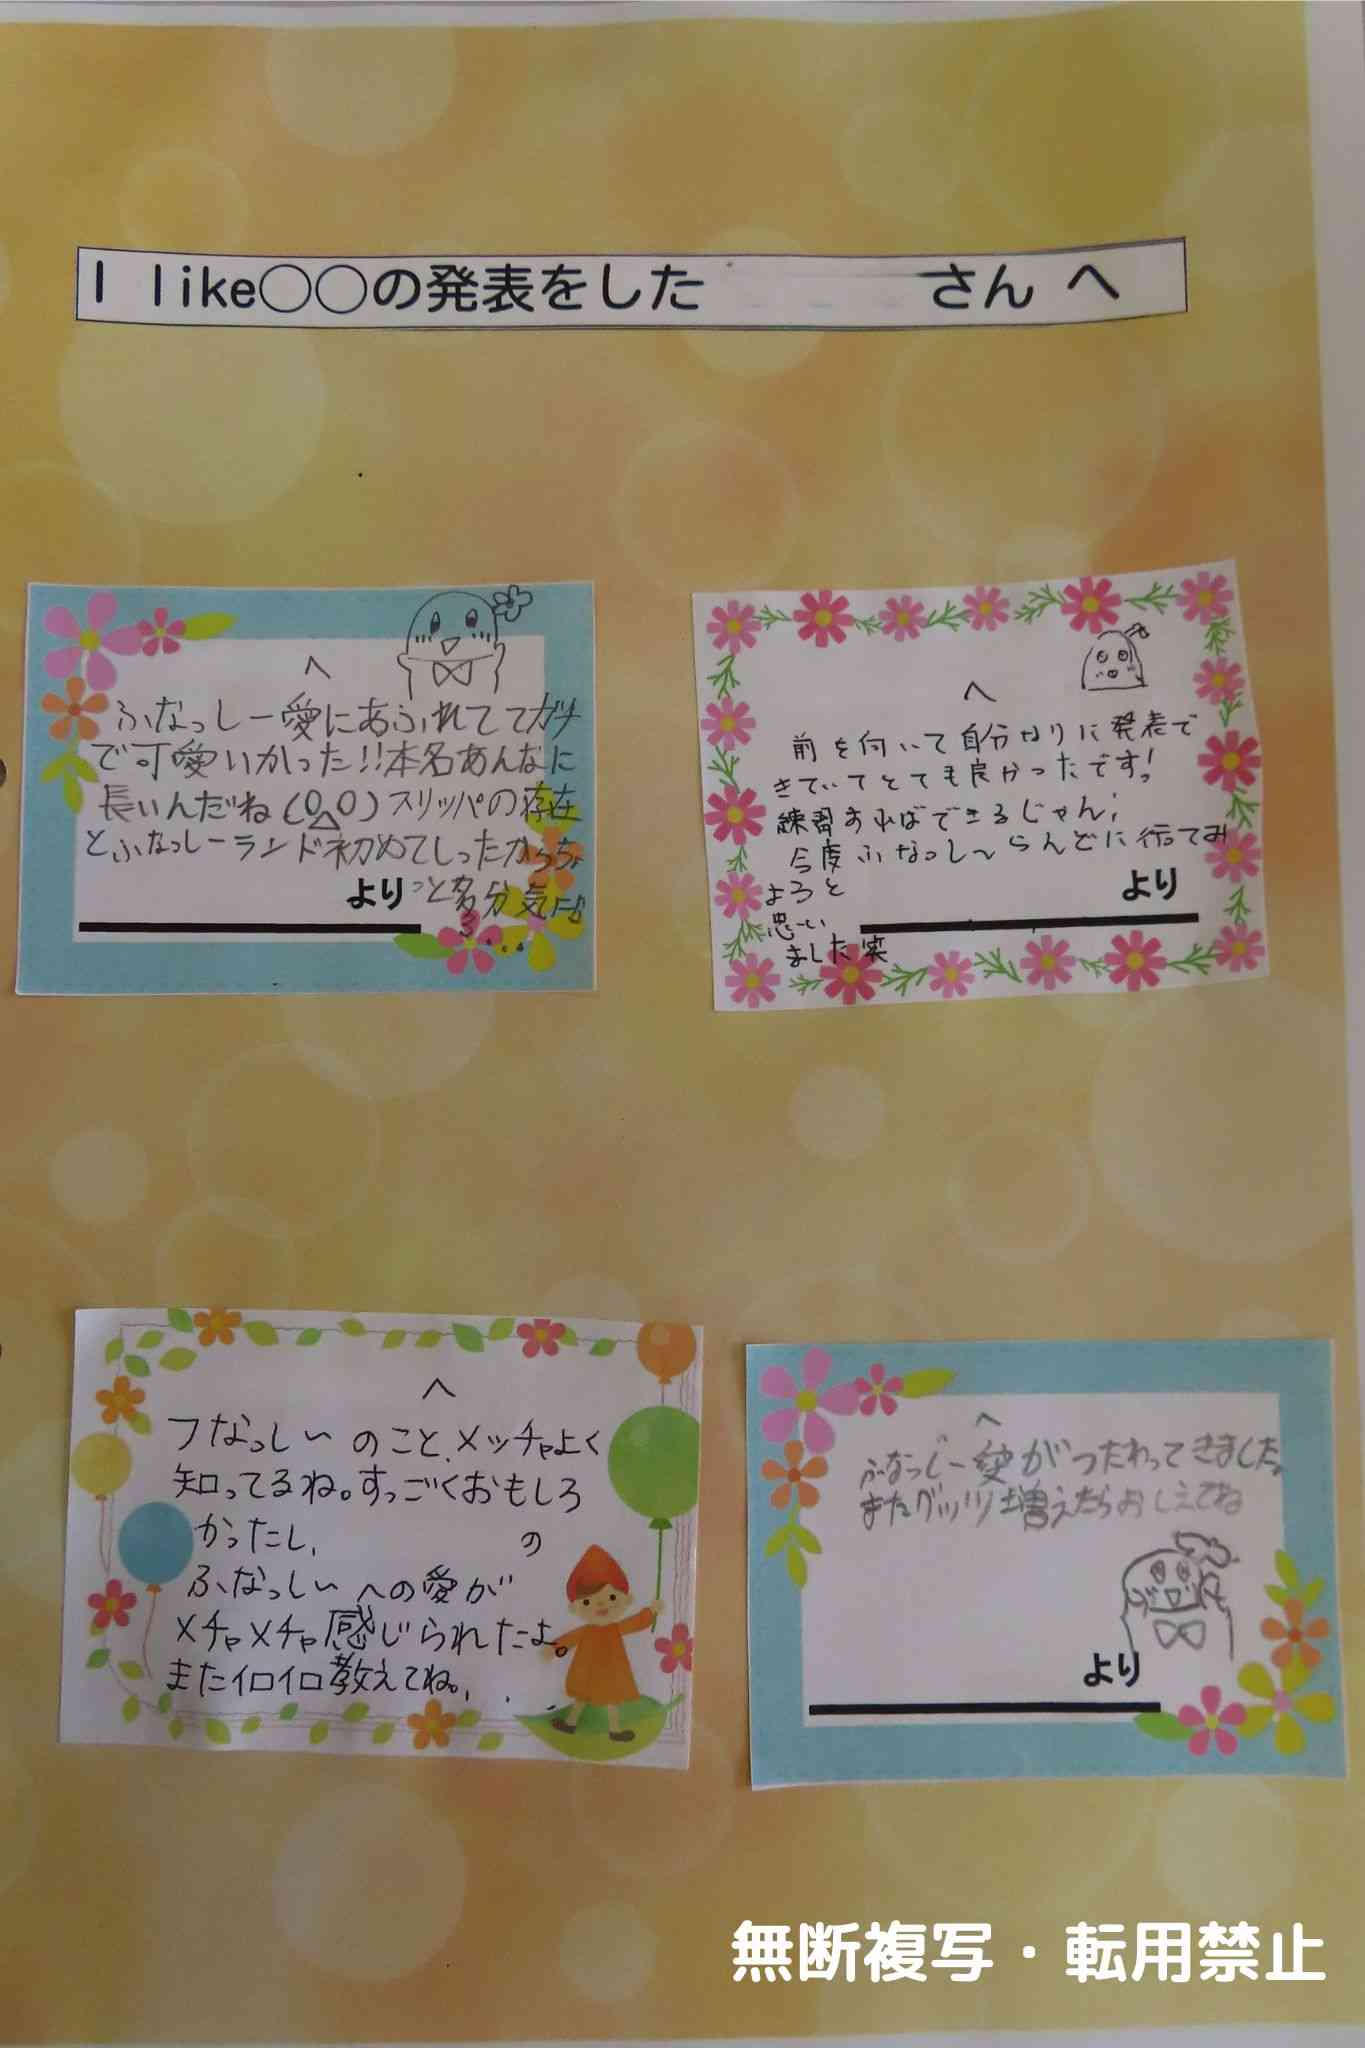 I like〇〇の発表をした さん へ
へ
ふなっしー愛にあふれててガチ
で可愛いかった!!本名あんなに
長いんだね(O△O)スリッパの存在
とふなっしーランド初めてしったからちょ
っと多分気になる...
より
へ
前を向いて自分なりに発表で
きていてとても良かったです!
練習すればできるじゃん!
今度ふなっし〜らんどに行ってみ
ようと
思い
ました笑
より
へ
フなっしぃのこと、メッチャよく
知ってるね。すっごくおもしろ
かったし、 の
ふなっしぃへの愛が
メチャメチャ感じられたよ。
またイロイロ教えてね。
へ
ふなっしー愛がつたわってきました。
またグッツ増えたらおしえてね
より
無断複写・転用禁止